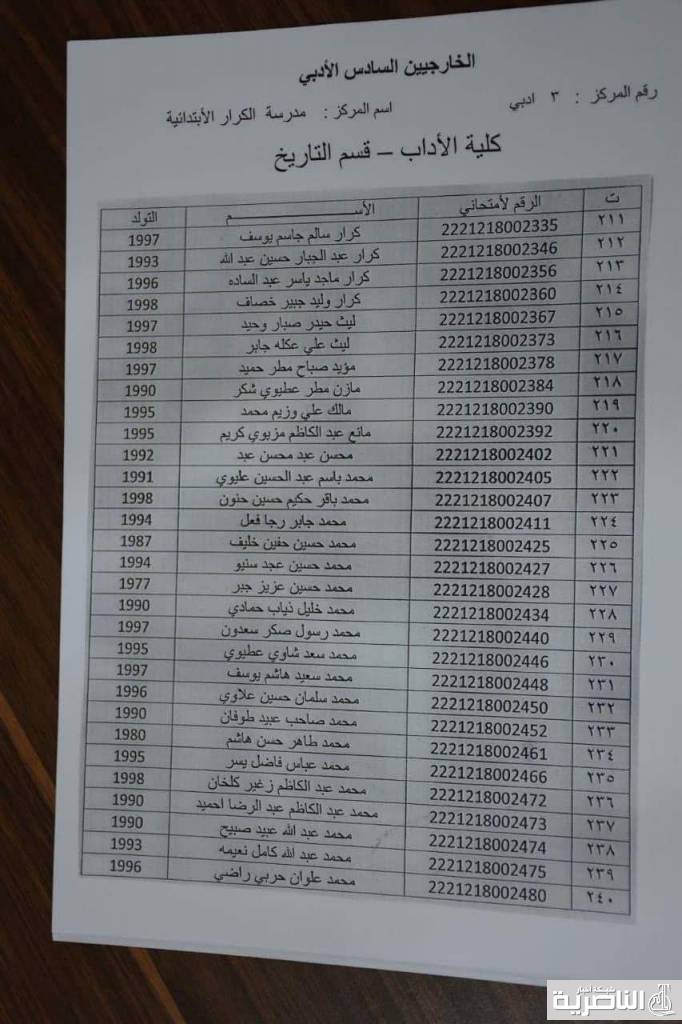 الخارجيين السادس الأدبي
رقم المركز : ٣ ادبي اسم المركز : مدرسة الكرار الأبتدائية
كلية الأداب – قسم التاريخ
ت الرقم لأمتحاني الأســـــم التولد
٢١١ 2221218002335 كرار سالم جاسم يوسف 1997
٢١٢ 2221218002346 كرار عبد الجبار حسين عبد الله 1993
٢١٣ 2221218002356 كرار ماجد ياسر عبد الساده 1996
٢١٤ 2221218002360 كرار وليد جبير خصاف 1998
٢١٥ 2221218002367 ليث حيدر صبار وحيد 1997
٢١٦ 2221218002373 ليث علي عكله جابر 1998
٢١٧ 2221218002378 مؤيد صباح مطر حميد 1997
٢١٨ 2221218002384 مازن مطر عطيوي شكر 1990
٢١٩ 2221218002390 مالك علي وزيم محمد 1995
٢٢٠ 2221218002392 مانع عبد الكاظم مزيوي كريم 1995
٢٢١ 2221218002402 محسن عبد محسن عبد 1992
٢٢٢ 2221218002405 محمد باسم عبد الحسين عليوي 1991
٢٢٣ 2221218002407 محمد باقر حكيم حسين حنون 1998
٢٢٤ 2221218002411 محمد جابر رجا فعل 1994
٢٢٥ 2221218002425 محمد حسين حفين خليف 1987
٢٢٦ 2221218002427 محمد حسين عجد سنيو 1994
٢٢٧ 2221218002428 محمد حسين عزيز جبر 1977
٢٢٨ 2221218002434 محمد خليل ذياب حمادي 1990
٢٢٩ 2221218002440 محمد رسول صكر سعدون 1997
٢٣٠ 2221218002446 محمد سعد شاوي عطيوي 1995
٢٣١ 2221218002448 محمد سعيد هاشم يوسف 1997
٢٣٢ 2221218002450 محمد سلمان حسين علاوي 1996
٢٣٣ 2221218002452 محمد صاحب عبيد طوفان 1990
٢٣٤ 2221218002461 محمد طاهر حسن هاشم 1980
٢٣٥ 2221218002466 محمد عباس فاضل يسر 1995
٢٣٦ 2221218002472 محمد عبد الكاظم زغير كلخان 1998
٢٣٧ 2221218002473 محمد عبد الكاظم عبد الرضا احميد 1990
٢٣٨ 2221218002474 محمد عبد الله عبيد صبيح 1990
٢٣٩ 2221218002475 محمد عبد الله كامل نعيمه 1993
٢٤٠ 2221218002480 محمد علوان حربي راضي 1996
شبكة أخبار
الناصرية